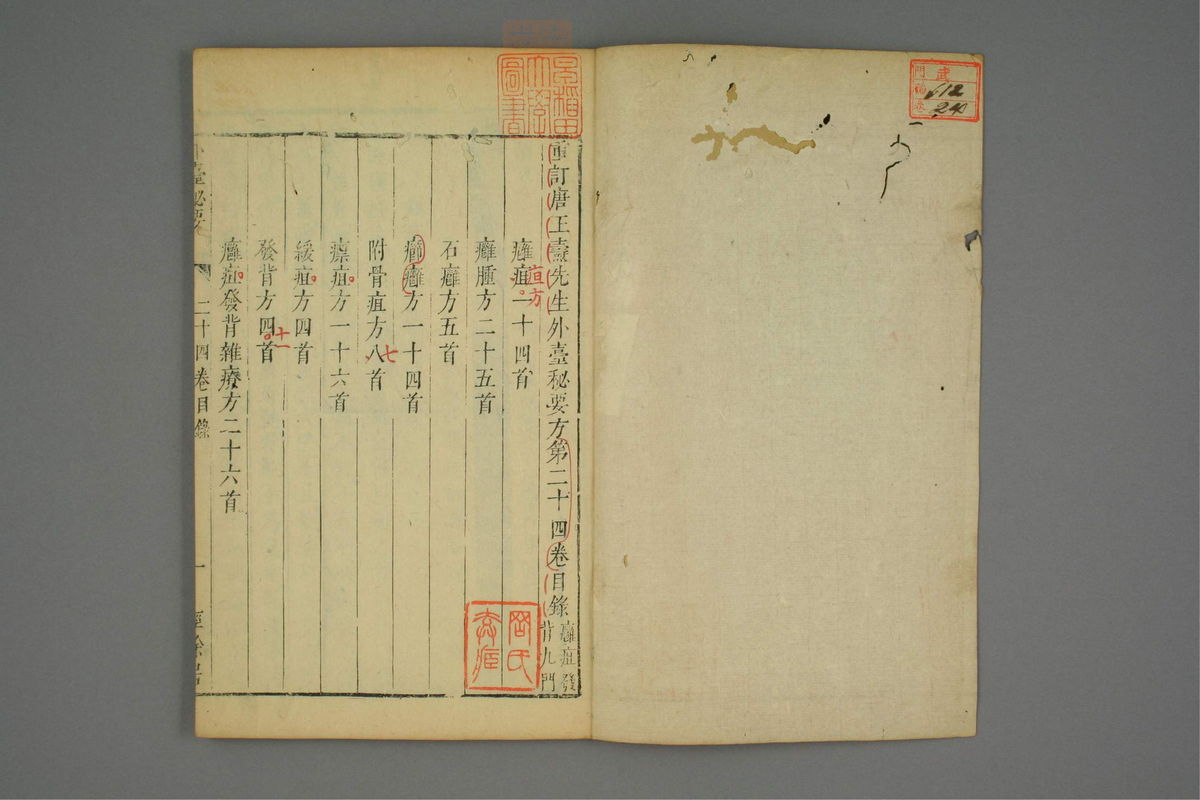 重訂唐王燾先生外臺秘要方第二十四卷目錄 癰疽發背九門
癰疽一十四首
疽方
癰腫方二十五首
石癰方五首
癤癰方一十四首
附骨疽方八首
七
瘭疽方一十六首
緩疽方四首
發背方四首
十一
癰疽發背雜療方二十六首
臺秘要
二十四卷目錄
一
早稻田大學圖書
武
門
卷
612
240